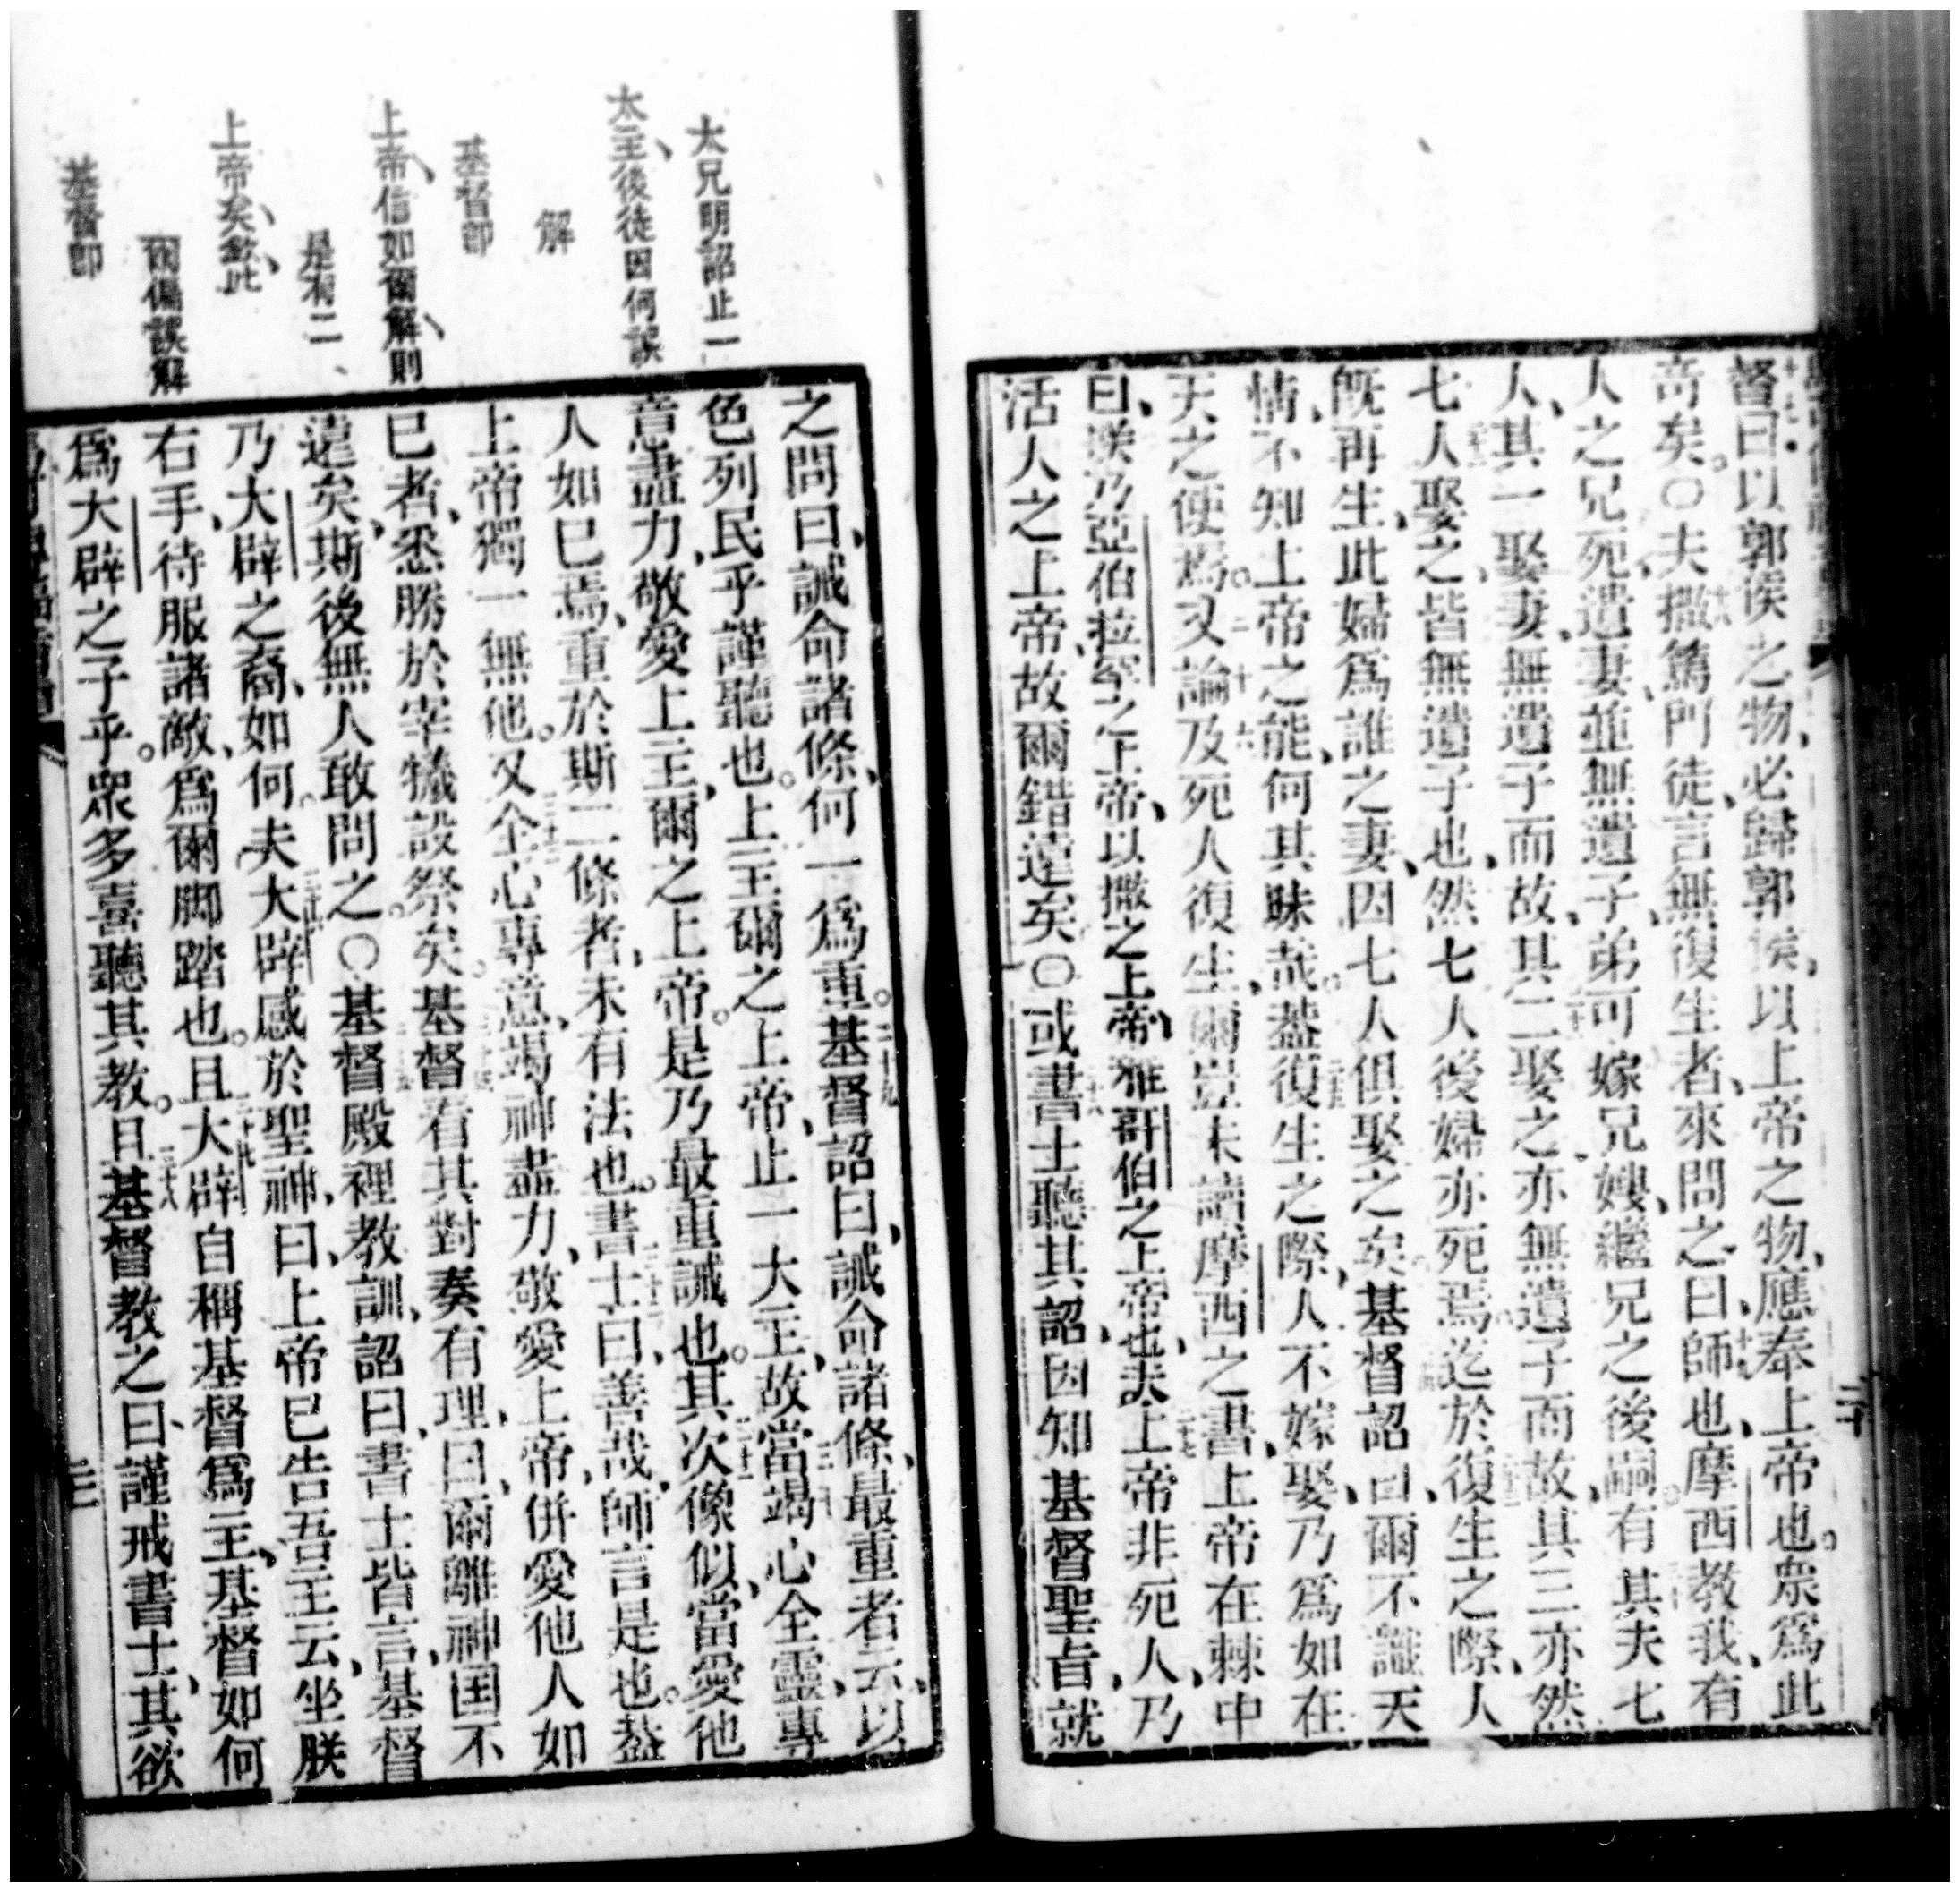 督曰以郭侯之物、必歸郭侯、以上帝之物、應奉上帝也。衆爲此
奇矣。〇夫撒篤門徒、言無復生者、來問之、曰、師也、摩西教我、有
人之兄死、遺妻、並無遺子、弟可嫁兄嫂、繼兄之後嗣。有其夫七
人、其一娶妻、無遺子而故、其二娶之、亦無遺子而故、其三亦然
七人娶之、皆無遺子也、然七人後婦亦死焉。迄於復生之際、人
旣再生、此婦爲誰之妻、因七人俱娶之矣。基督詔曰、爾不識天
情、不知上帝之能、何其昧哉。葢復生之際、人不嫁娶、乃爲如在
天之使焉。又論及死人復生、爾豈未讀摩西之書、上帝在棘中
曰、朕乃亞伯拉罕之上帝、以撒之上帝、雅哥伯之上帝也、夫上帝非死人、乃
活人之上帝、故爾錯遠矣。〇或書士聽其詔、因知基督聖旨、就
二十
太兄明詔止一
太主後徒因何誤
解
基督卽
上帝信如爾解則
是有二
上帝矣欽此
爾偏誤解
基督卽
之問曰、誡命諸條、何一爲重。基督詔曰、誡命諸條、最重者云、以
色列民乎、謹聽也。上主爾之上帝、止一大主、故當竭心全靈、專
意盡力、敬愛上主、爾之上帝。是乃最重誡也。其次像似、當愛他
人如己焉、重於斯二條者、未有法也。書士曰、善哉、師言是也。葢
上帝獨一無他。又全心專意、竭神盡力、敬愛上帝、併愛他人如
已者、悉勝於宰犧設祭矣。基督看其對奏有理、曰、爾離神囯不
遠矣、斯後無人敢問之。〇基督殿裡教訓、詔曰、書士皆言、基督
乃大辟之裔、如何。夫大辟感於聖神、曰、上帝已告吾主云、坐朕
右手、待服諸敵、爲爾脚踏也。且大辟自稱基督爲主、基督如何
爲大辟之子乎。眾多喜聽其教。且基督教之曰、謹戒書士、其欲